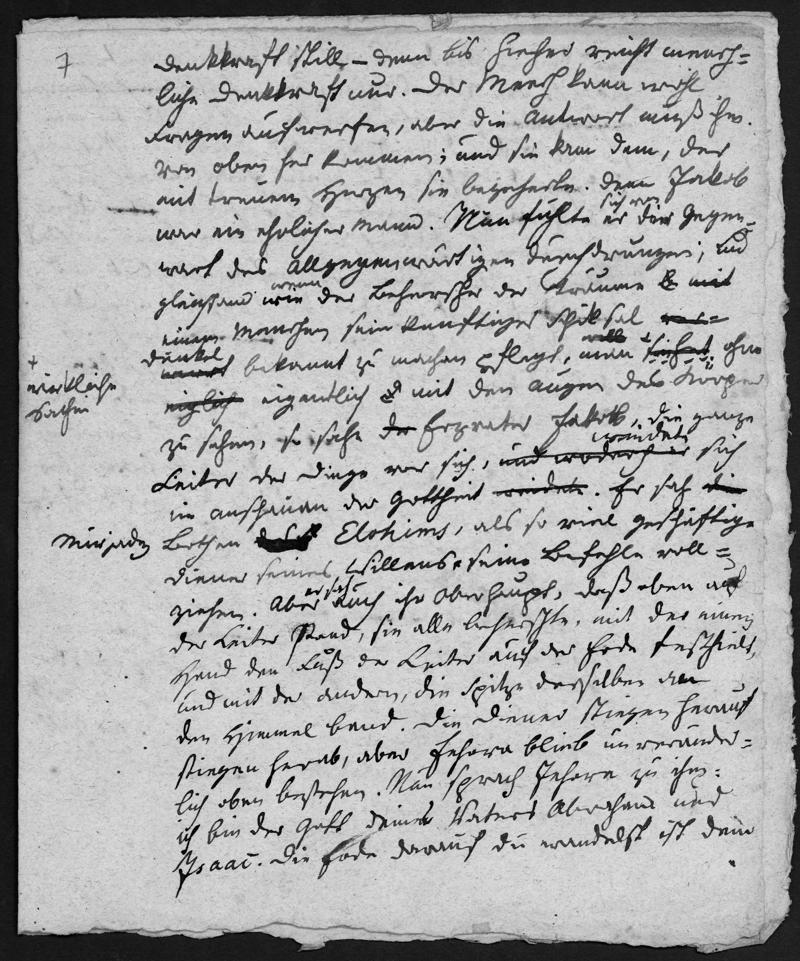 7
denkkraft still – denn bis hieher reicht mensch=
liche denkkraft nur. Der Mensch kann wohl
Fragen aufwerfen, aber die Antwort muß ihm
von oben her kommen; und sie kam dem, der
mit treuem Herzen sie begehrte. denn Jakob
war ein ehrlicher Mann. Nun fühlte er sich von der Gegen=
wart des Allgegenwärtigen durchdrungen; und
gleichsam wie wenn der Beherscher der Träume mit
einem Menschen sein künftiges schiksal
dunkel bekannt zu machen pflegt, man ohne
wirkliche
Sachen
eigentlich mit den Augen des Körpers
zu sehen, so sahe der Erzvater Jakob, die ganze
Leiter der Dinge vor sich, und wodurch er weidete sich
im anschauen der Gottheit weidete. Er sah die
Mirjaden
Bothen des Elohims, als so viel geschäftige
diener seines Willens, seine Befehle voll=
ziehen. Aber er sah auch ihr Oberhaupt, daß oben auf
der Leiter stand, sie alle beherschte, mit der einen
Hand den Fuß der Leiter auf der Erde festhielt,
und mit der andern, die Spitze derselben an
den Himmel band. Die Diener stiegen herauf
stiegen herab, aber Jehova blieb unveränder=
lich oben bestehen. Nun sprach Jehova zu ihm:
ich bin der Gott deines Vaters Abrahams und
Isaac. Die Erde darauf du wandelst ist dein